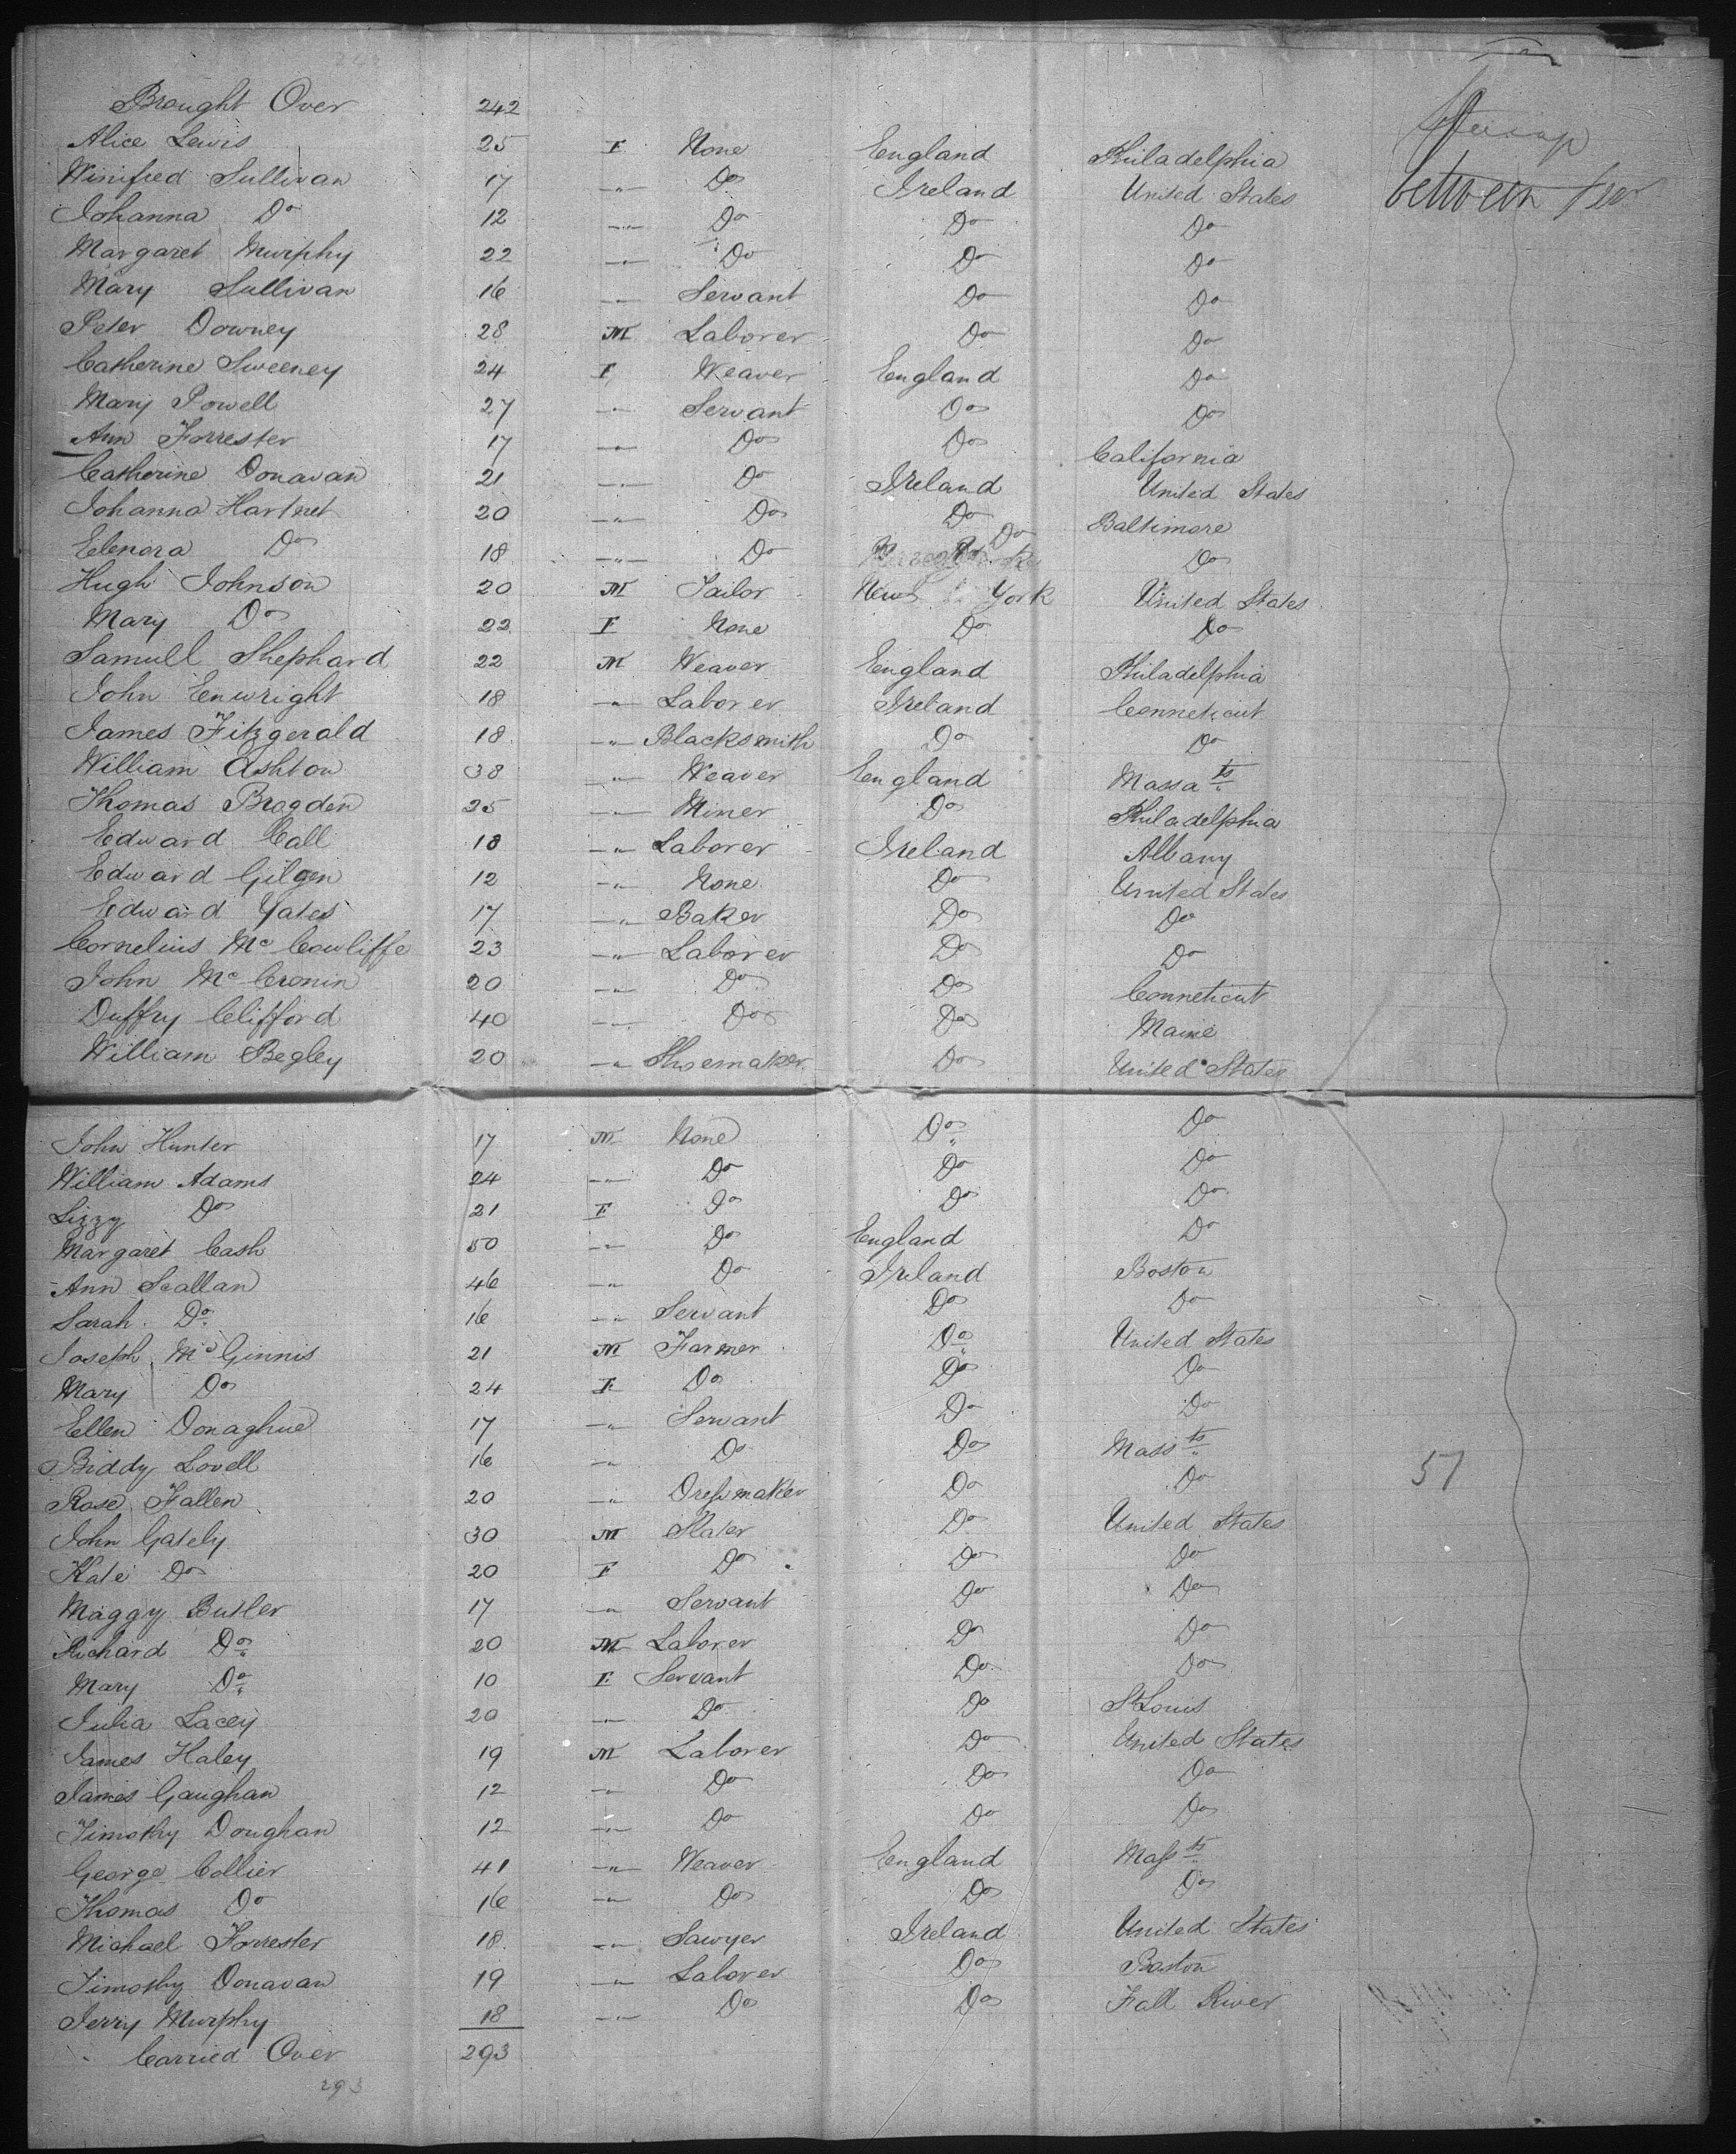 Brought Over 242
Alice Lewis 25 F None England Philadelphia
Steerage
Winifred Sullivan 17 " Do Ireland United States
between
Johanna Do 12 " Do Do Do
Margaret Murphy 22 " Do Do Do
Mary Sullivan 16 " Servant Do Do
Peter Downey 28 M Laborer Do Do
Catherine Sweeney 24 F Weaver England Do
Mary Powell 27 " Servant Do Do
Ann Forrester 17 " Do Do California
Catherine Donavan 21 " Do Ireland United States
Johanna Hartnet 20 " Do Do Baltimore
Elenora Do 18 " Do Do Do
Hugh Johnson 20 M Tailor New York United States
Mary Do 22 F None Do Do
Samull Shephard 22 M Weaver England Philadelphia
John Enwright 18 " Laborer Ireland Conneticut
James Fitzgerald 18 " Blacksmith Do Do
William Ashton 38 " Weaver England Massa ts
Thomas Brogden 25 " Miner Do Philadelphia
Edward Call 18 " Laborer Ireland Albany
Edward Gilgin 12 " None Do United States
Edward Yates 17 " Baker Do Do
Cornelius Mc Cowliffe 23 " Laborer Do Do
John Mc Cronin 20 " Do Do Conneticut
Duffry Clifford 40 " Do Do Maine
William Begley 20 " Shoemaker Do United States
John Hunter 17 M None Do Do
William Adams 24 " Do Do Do
Lizzy Do 21 F Do Do Do
Margaret Cash 50 " Do England Do
Ann Scallan 46 " Do Ireland Boston
Sarah Do 16 " Servant Do Do
Joseph Mc Ginnis 21 M Farmer Do United States
Mary Do 24 F Do Do Do
Ellen Donaghue 17 " Servant Do Do
Biddy Lovell 16 " Do Do Mass ts
51
Rose Fallen 20 " Dressmaker Do Do
John Gately 30 M Slater Do United States
Kate Do 20 F Do Do Do
Maggy Butler 17 " Servant Do Do
Richard Do 20 M Laborer Do Do
Mary Do 10 F Servant Do Do
Julia Lacey 20 " Do Do St Louis
James Haley 19 M Laborer Do United States
James Gaughan 12 " Do Do Do
Timothy Doughan 12 " Do Do Do
George Collier 41 " Weaver England Mass ts
Thomas Do 16 " Do Do Do
Michael Forrester 18 " Sawyer Ireland United States
Timothy Donavan 19 " Laborer Do Boston
Jerry Murphy 18 " Do Do Fall River
Carried Over 293
293